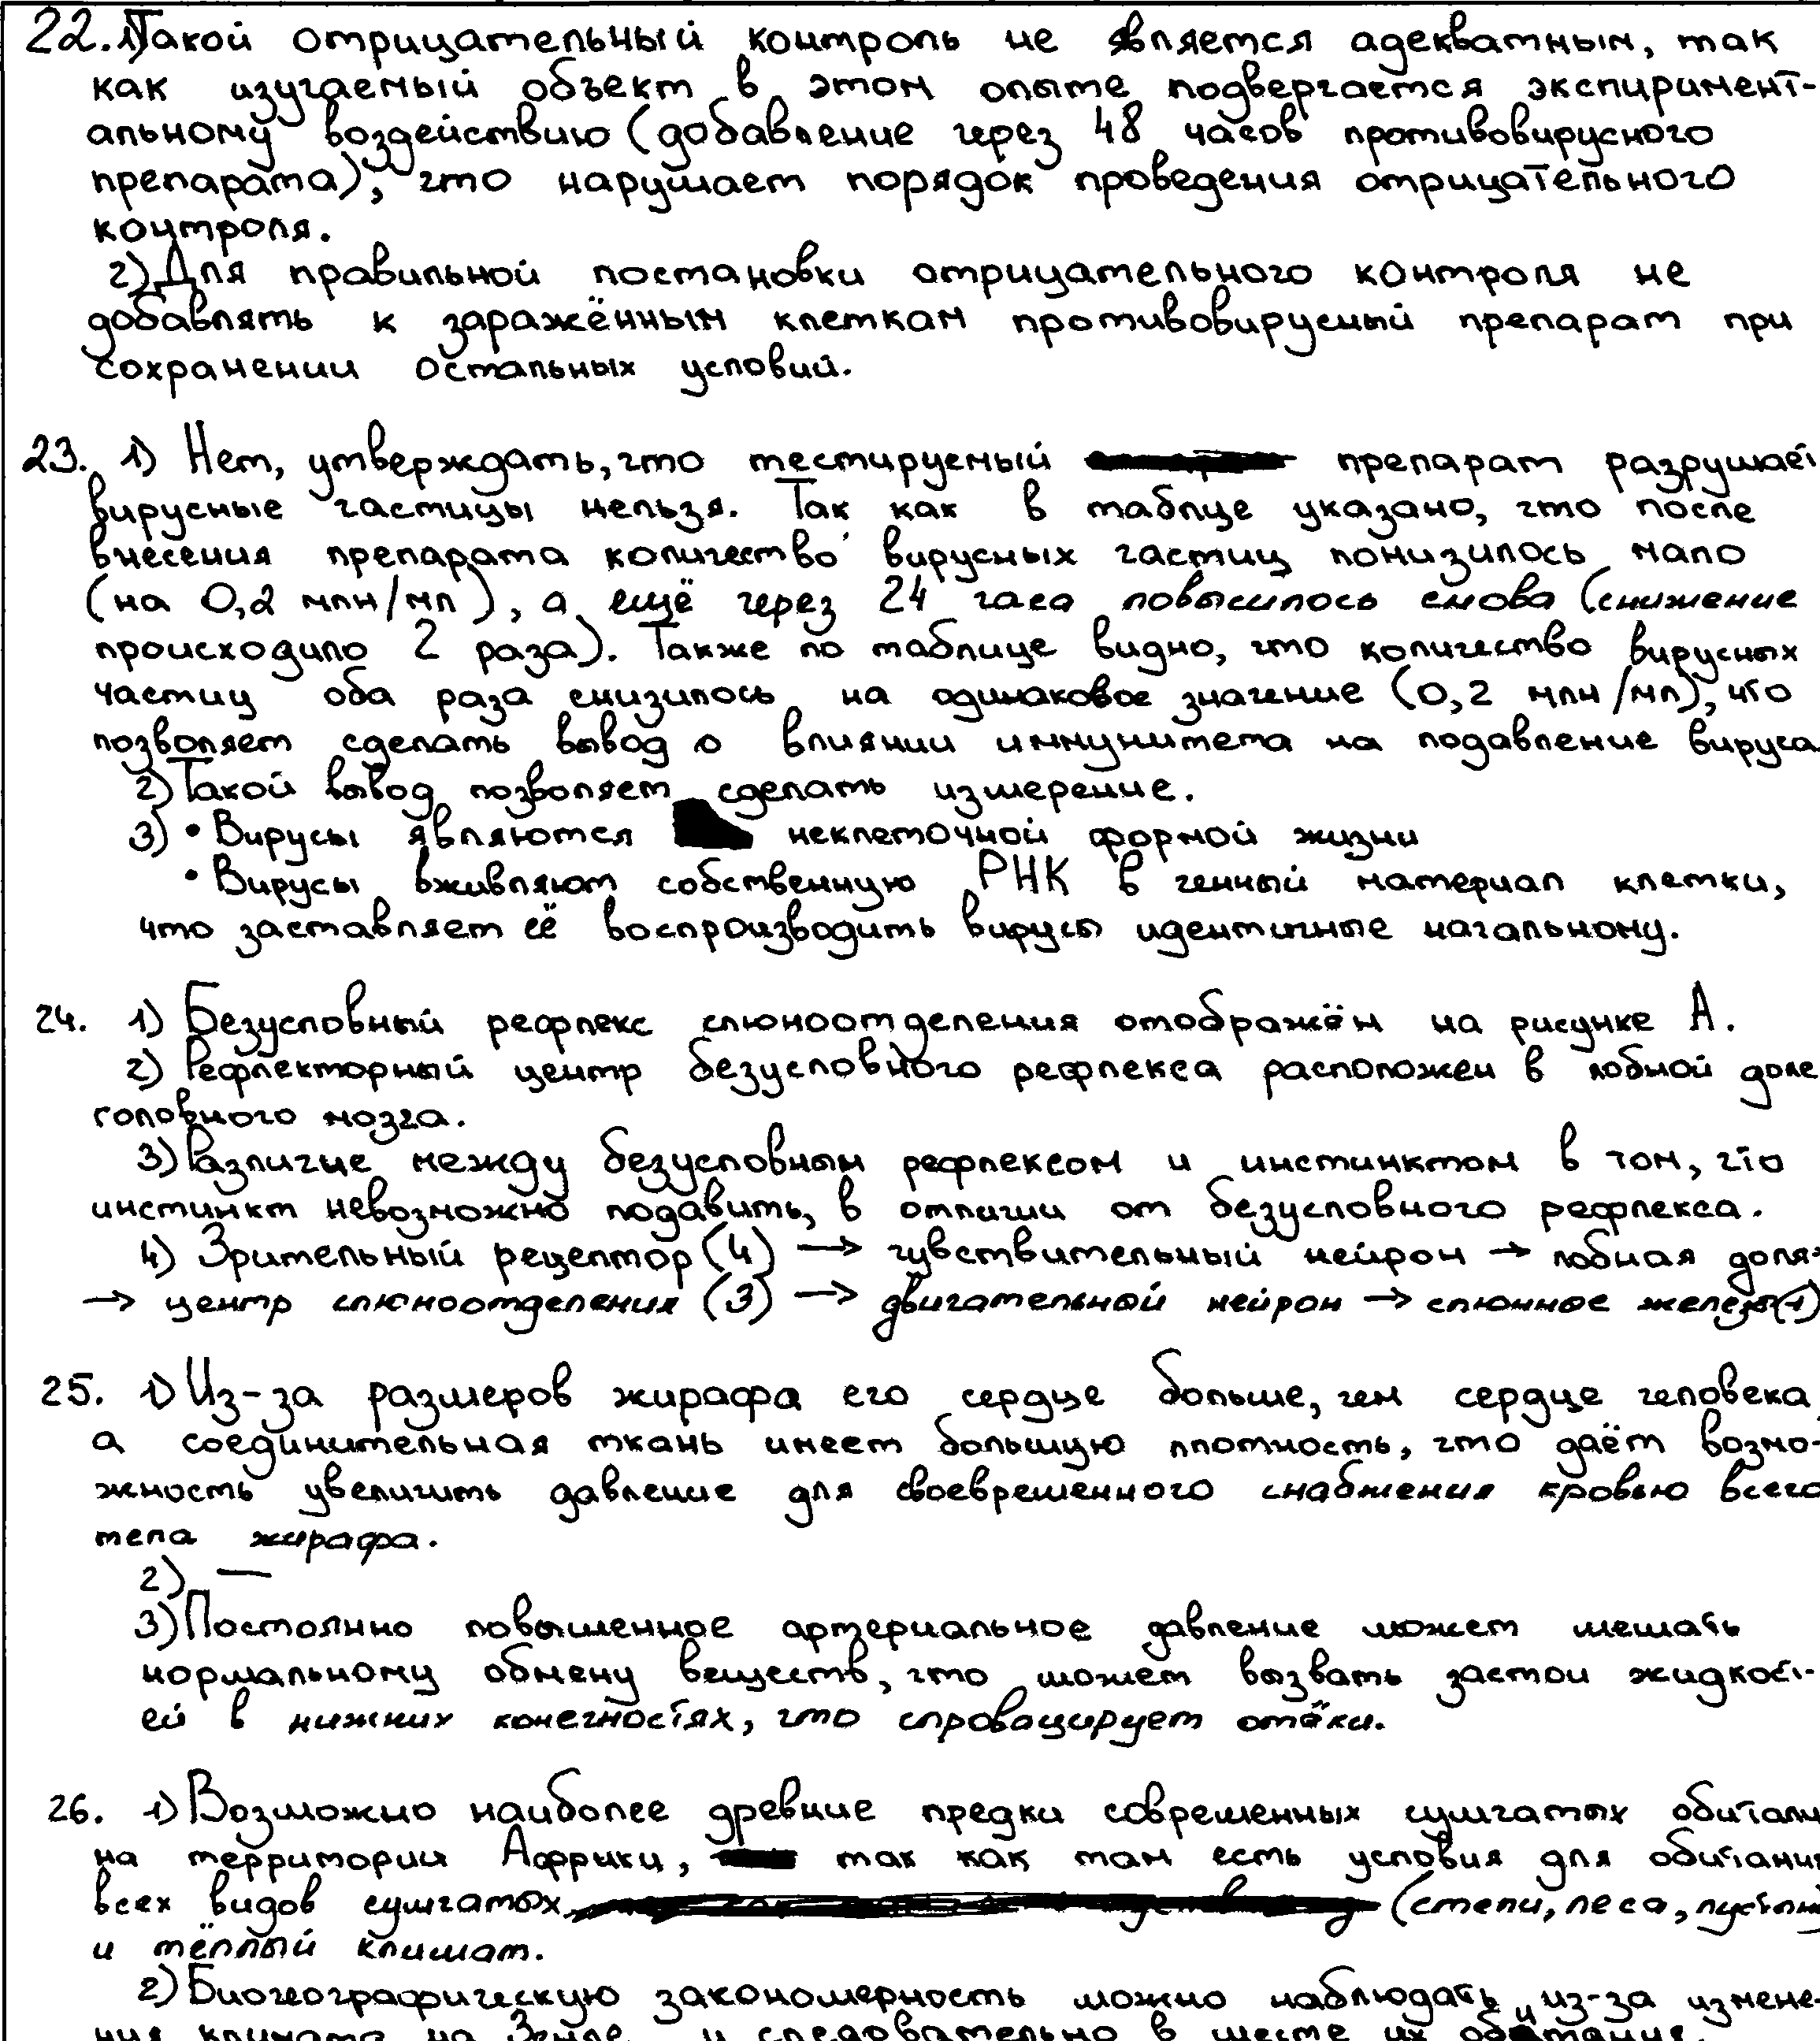 22. 1) Такой отрицательный контроль не является адекватным, так
как изучаемый объект в этом опыте подвергается экспиримент-
альному воздействию (добавление через 48 часов противовирусного
препарата), что нарушает порядок проведения отрицательного
контроля.
2) Для правильной постановки отрицательного контроля не
добавлять к заражённым клеткам противовирусный препарат при
сохранении остальных условий.
23. 1) Нет, утверждать, что тестируемый препарат разрушает
вирусные частицы нельзя. Так как в таблце указано, что после
внесения препарата количество вирусных частиц понизилось мало
(на 0,2 млн/мл), а ещё через 24 часа повысилось снова (снижение
происходило 2 раза). Также по таблице видно, что количество вирусных
частиц оба раза снизилось на одинаковое значение (0,2 млн/мл), что
позволяет сделать вывод о влиянии иммунитета на подавление вируса
2) Такой вывод позволяет сделать измерение.
3) • Вирусы являются неклеточной формой жизни
• Вирусы вживляют собственную РНК в генный материал клетки,
что заставляет её воспроизводить вирусы идентичные начальному.
24. 1) Безусловный рефлекс слюноотделения отображён на рисунке А.
2) Рефлекторный центр безусловного рефлекса расположен в лобной доле
головного мозга.
3) Различие между безусловным рефлексом и инстинктом в том, что
инстинкт невозможно подавить, в отличии от безусловного рефлекса.
4) Зрительный рецептор (4) → чувствительный нейрон → лобная доля
→ центр слюноотделения (3) → двигательный нейрон → слюнные железы (1)
25. 1) Из-за размеров жирафа его сердце больше, чем сердце человека,
а соединительная ткань имеет большую плотность, что даёт возмо-
жность увеличить давление для своевременного снабжения кровью всего
тела жирафа.
2) —
3) Постоянно повышенное артериальное давление может мешать
нормальному обмену веществ, что может вызвать застои жидкост-
ей в нижних конечностях, что спровацирует отёки.
26. 1) Возможно наиболее древние предки современных сумчатых обитали
на территории Африки, так как там есть условия для обитания
всех видов сумчатых (степи, леса, пустыни
и тёплый климат.
2) Биогеографическую закономерность можно наблюдать из-за измене-
ния климата на Земле и следовательно в месте их обитания.